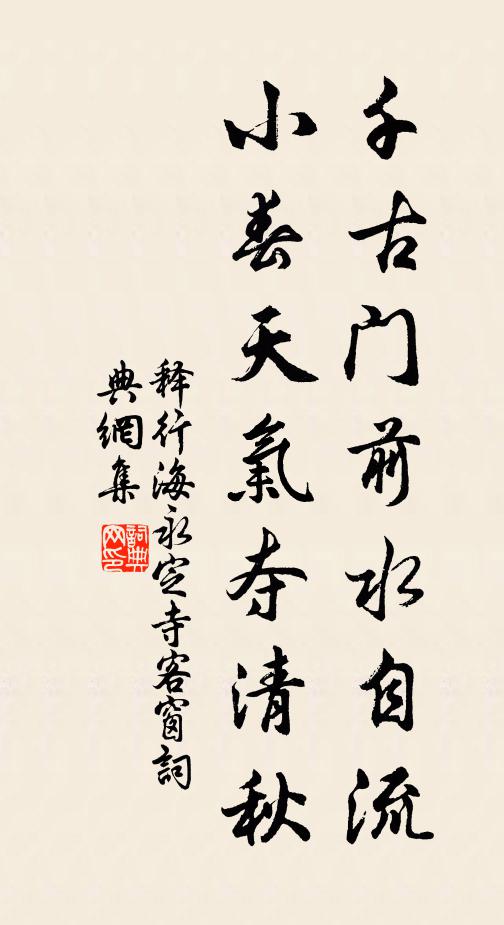 千古门前水自流
小春天氣夺清秋
释行海永定寺客窗詞
典網集
詞典
网印